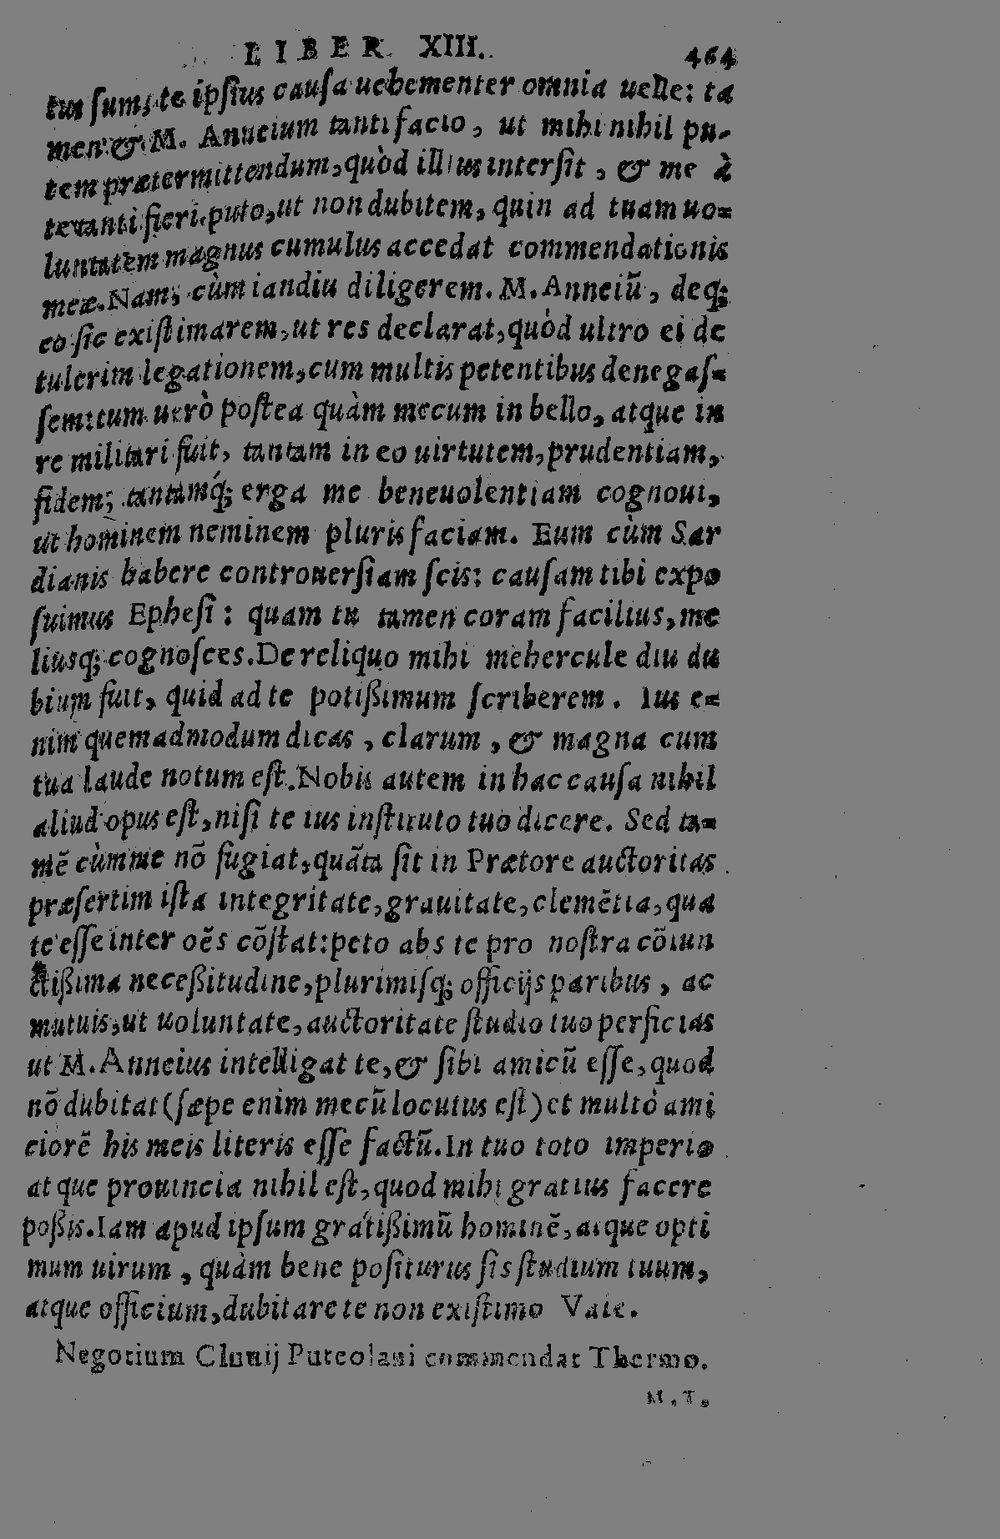 LIBER XIII. 464
tus sum, te ipsius causa uehementer omnia uelle: ta
men & M. Anneium tanti facio, ut mihi nihil pu-
tem prætermittendum, quòd illius intersit, & me à
te tanti fieri puto, ut non dubitem, quin ad tuam uo=
luntatem magnus cumulus accedat commendationis
meæ. Nam, cùm iandiu diligerem. M. Anneiũ, deq;
eo sic existimarem, ut res declarat, quòd ultro ei de
tulerim legationem, cum multis petentibus denegas=
sem: tum uerò postea quàm mecum in bello, atque in
re militari fuit, tantam in eo uirtutem, prudentiam,
fidem; tantamq́; erga me beneuolentiam cognoui,
ut hominem neminem pluris faciam. Eum cùm Sar
dianis habere controuersiam scis: causam tibi expo
suimus Ephesi: quam tu tamen coram facilius, me
liusq; cognosces. De reliquo mihi mehercule diu du
bium fuit, quid ad te potißimum scriberem. Ius e=
nim quemadmodum dicas, clarum, & magna cum
tua laude notum est. Nobis autem in hac causa nihil
aliud opus est, nisi te ius instituto tuo dicere. Sed ta=
mẽ cùm me nõ fugiat, quãta sit in Prætore auctoritas
præsertim ista integritate, grauitate, clemẽtia, qua
te esse inter oẽs cõstat: peto abs te pro nostra cõiun
ctißima neceßitudine, plurimisq; officijs paribus, ac
mutuis, ut uoluntate, auctoritate studio tuo perficias
ut M. Anneius intelligat te, & sibi amicũ esse, quod
nõ dubitat (sæpe enim mecũ locutus est) et multò ami
ciorẽ his meis literis esse factũ. In tuo toto imperio
atque prouincia nihil est, quod mihi gratius facere
poßis. Iam apud ipsum gratißimũ hominẽ, atque opti
mum uirum, quàm bene positurus sis studium tuum,
atque officium, dubitare te non existimo Vale.
Negotium Cluuij Puteolani commendat Thermo.
M. T.